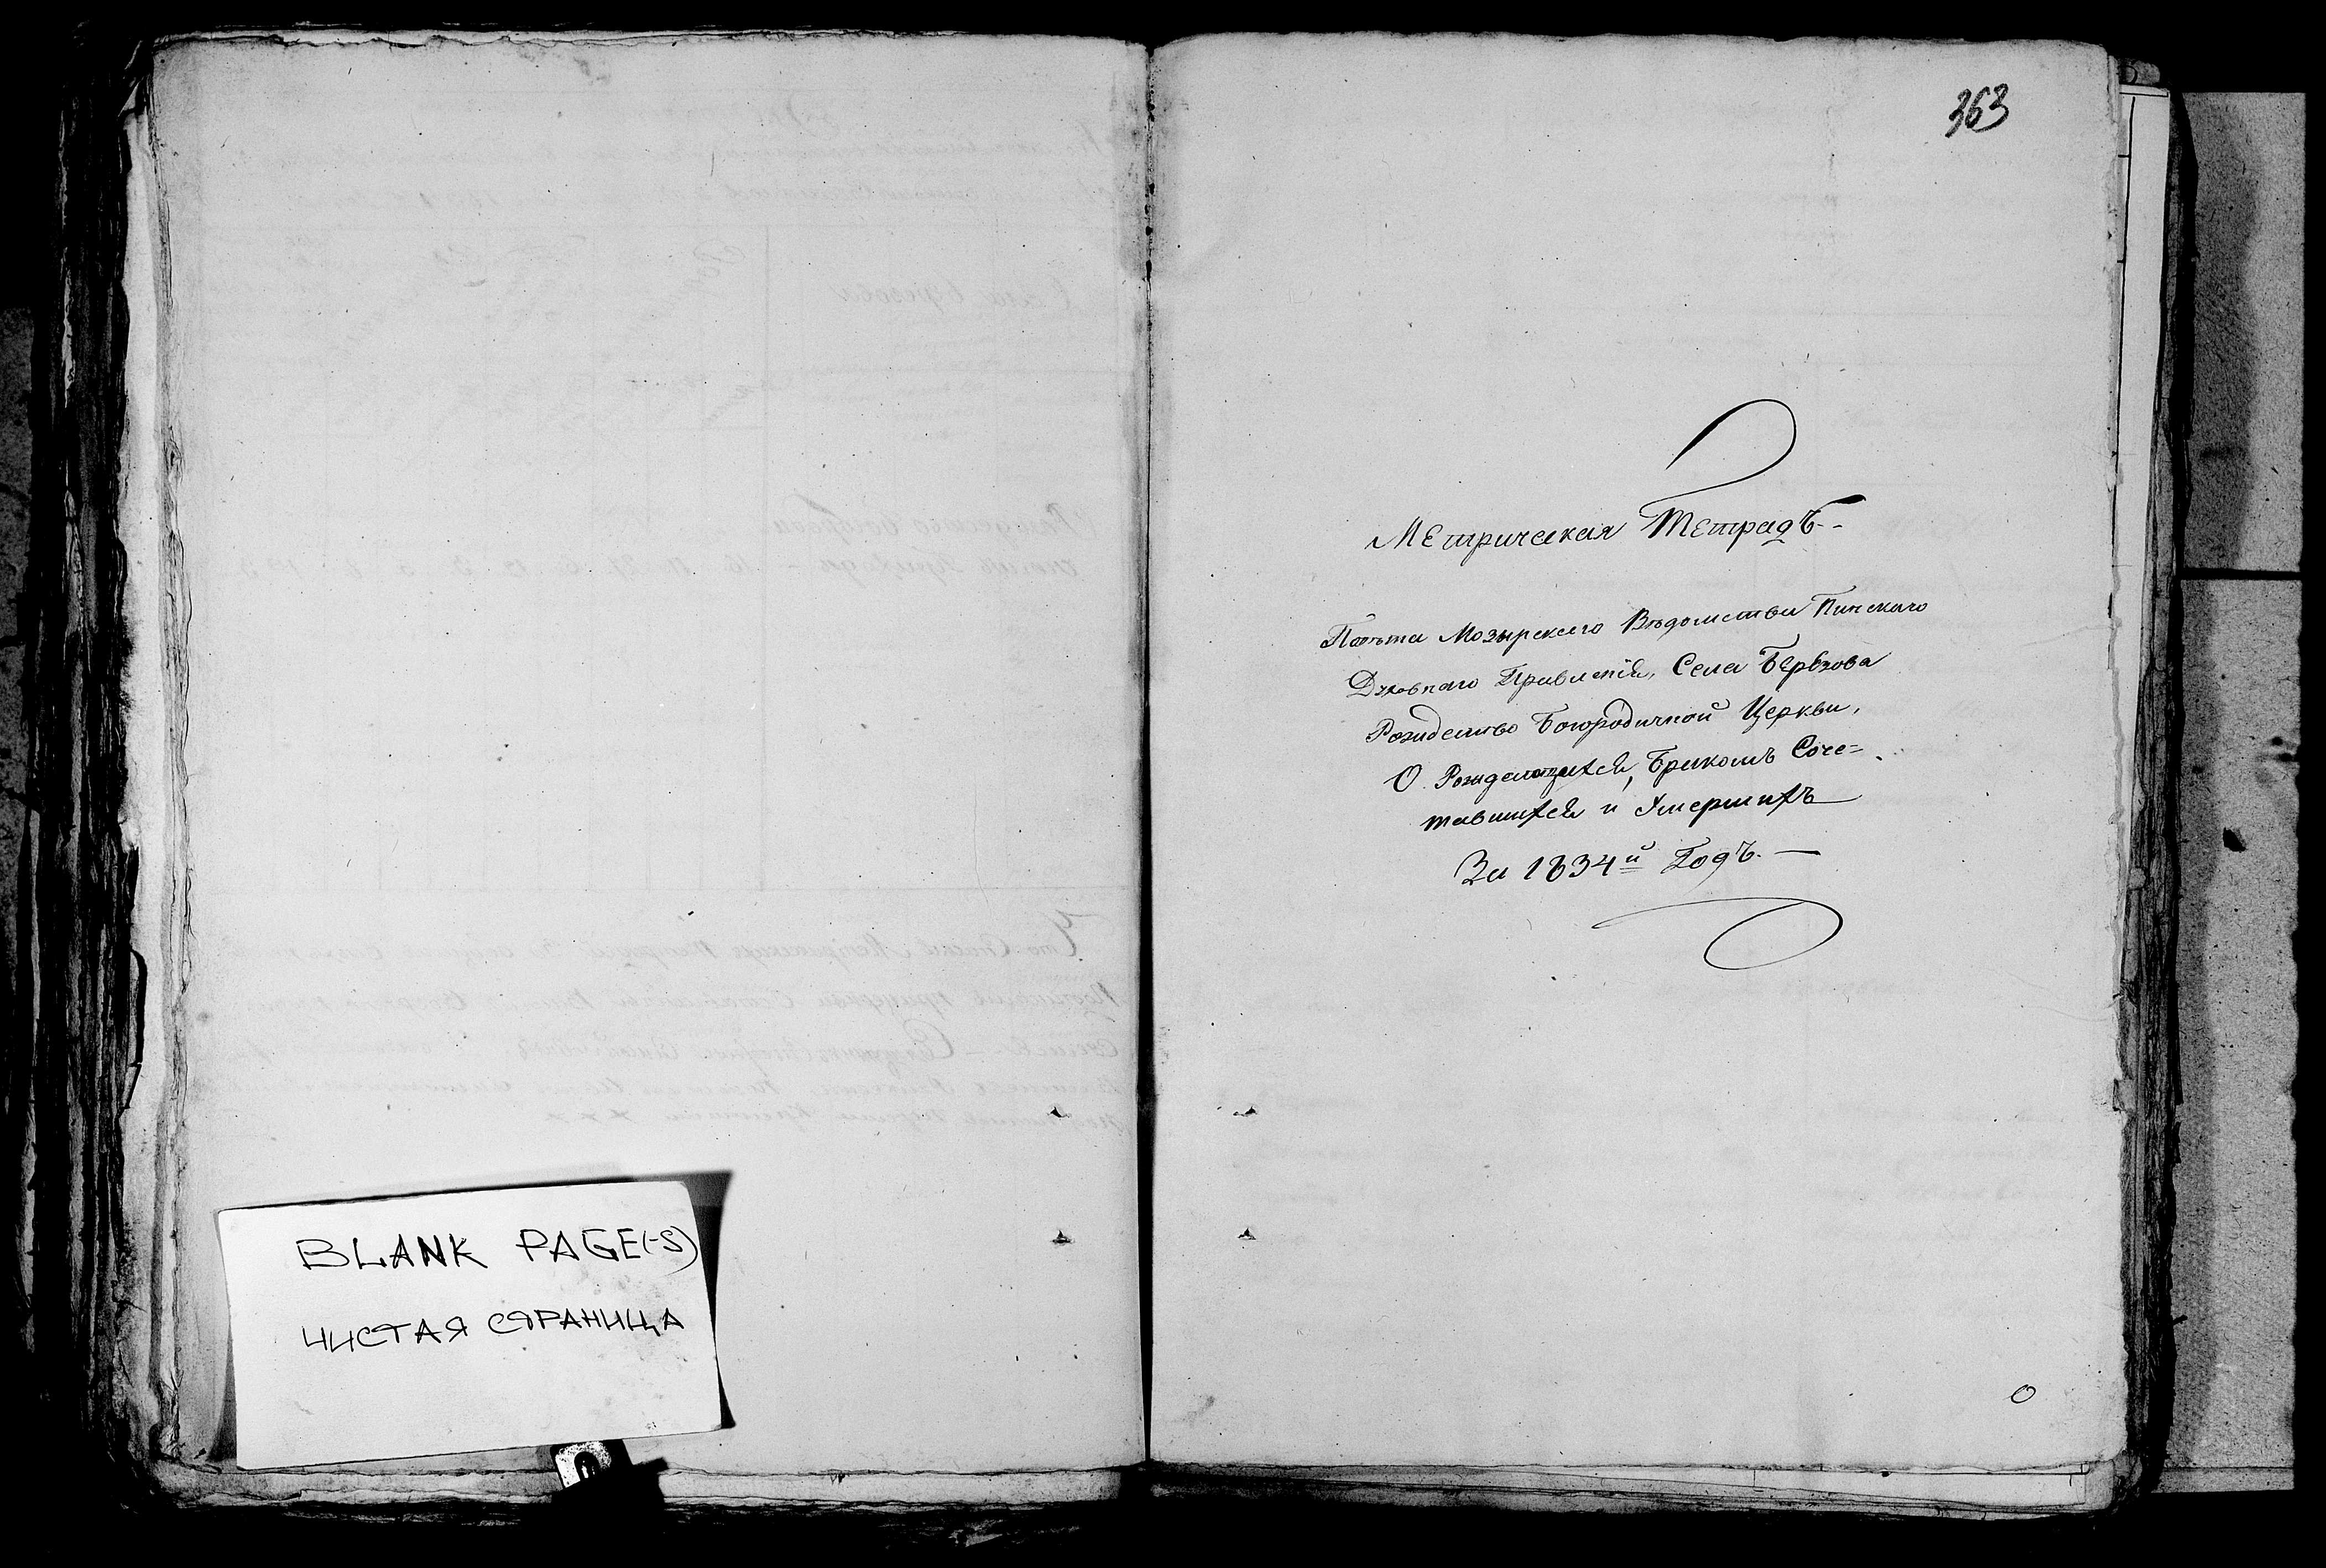 BLANK PAGE(-S)
ЧИСТАЯ СТРАНИЦА
363
Метрическая Тетрадь
Повѣта Мозырскаго Вѣдомства Пинскаго
Духовнаго Правленія, Села Берѣзова
Рождество Богородичной Церкви,
О Рождающихся, Бракомъ Соче=
тавшихся и Умершихъ
За 1834й Годъ. —